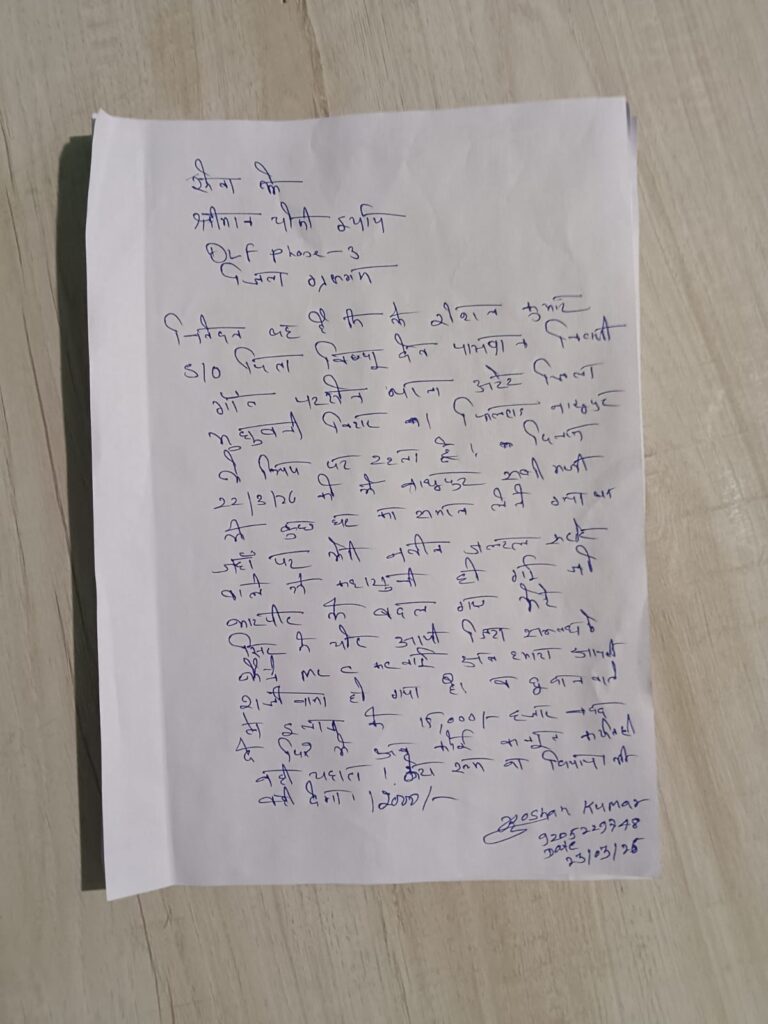 सेवा में
श्रीमान चौकी इंचार्ज
DLF phase-3
जिला गुरुग्राम
निवेदन यह है कि मैं रोशन कुमार
S/O पिता विष्णु देव पासवान निवासी
गाँव थाना जिला
मधुबनी बिहार का फिलहाल नाथूपुर
में किराए पर रहता है। दिनांक
22/3/26 को मैं नाथूपुर सब्जी मण्डी
में कुछ घर का समान लेने गया था
जहाँ पर मेरी नवीन जनरल स्टोर
वाले से कहासुनी हो गई जो
मारपीट में बदल गया मेरे
सिर में चोट आयी जिसके
मैंने MLC करवाई अब हमारा आपसी
राजीनामा हो गया है। व दुकान वाले
ने इलाज के 15,000/- हजार रुपये
दे दिये मैं अब कोई कानूनी कार्यवाही
नहीं चाहता। मेरा रूम का किराया भी
नहीं देना। 12000/-
Roshan Kumar
9205229748
Date
23/03/26